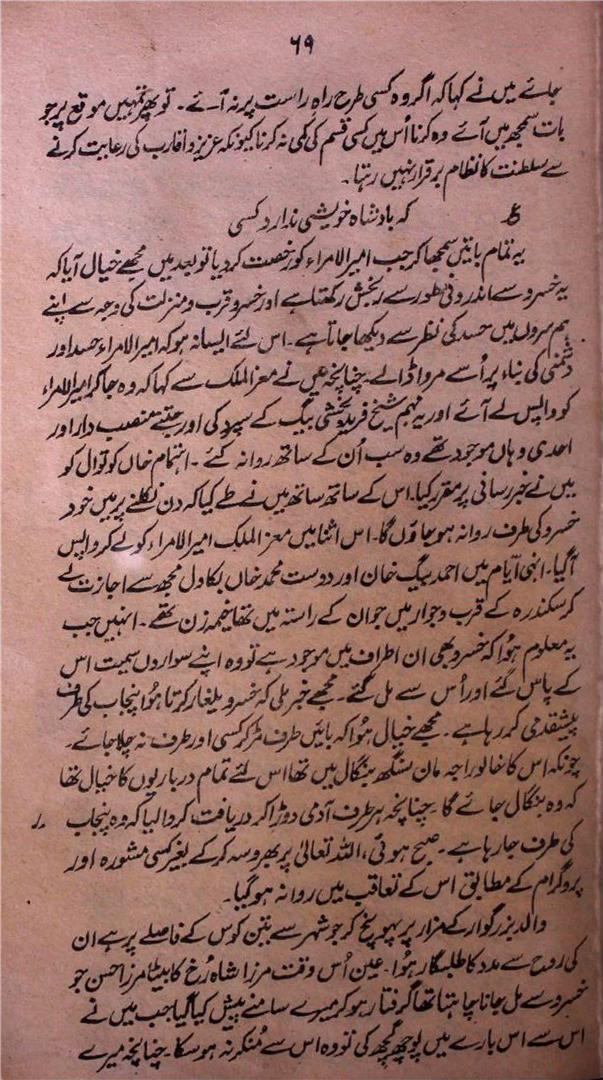 ۶۹
جائے میں نے کہا کہ اگر وہ کسی طرح راہِ راست پر نہ آئے۔ تو پھر تمہیں موقع پر جو
بات سمجھ میں آئے وہ کرنا اُس میں کسی قسم کی کمی نہ کرنا کیونکہ عزیز و اقارب کی رعایت کرنے
سے سلطنت کا نظام برقرار نہیں رہتا۔
ع کہ بادشاہ خویشی ندارد کسی
یہ تمام باتیں سمجھا کر جب امیر الامراء کو رخصت کر دیا تو بعد میں مجھے خیال آیا کہ
یہ خسرو سے اندرونی طور سے رنجش رکھتا ہے اور خسرو قرب و منزلت کی وجہ سے اپنے
ہم سروں میں حسد کی نظر سے دیکھا جاتا ہے۔ اس لئے ایسا نہ ہو کہ امیر الامراء حسد اور
دشمنی کی بناء پر اُسے مروا ڈالے۔ چنانچہ میں نے معز الملک سے کہا کہ وہ جا کر امیر الامراء
کو واپس لے آئے اور یہ مہم شیخ فرید بخشی بیگ کے سپرد کی اور جتنے منصب دار اور
احدی وہاں موجود تھے وہ سب اُن کے ساتھ روانہ کئے۔ اہتمام خاں کوتوال کو
میں نے خبر رسانی پر مقرر کیا۔ اس کے ساتھ ساتھ میں نے طے کیا کہ دن نکلنے پر میں خود
خسرو کی طرف روانہ ہو جاؤں گا۔ اس اثنا میں معز الملک امیر الامراء کو لے کر واپس
آ گیا۔ انہی ایّام میں احمد بیگ خان اور دوست محمد خاں بکاول مجھ سے اجازت لے
کر سکندرہ کے قرب و جوار میں جو ان کے راستہ میں تھا خیمہ زن تھے۔ انہیں جب
یہ معلوم ہوا کہ خسرو بھی ان اطراف میں موجود ہے تو وہ اپنے سواروں سمیت اس
کے پاس گئے اور اُس سے مل گئے۔ مجھے خبر ملی کہ خسرو یلغار کرتا ہوا پنجاب کی طرف
پیشقدمی کر رہا ہے۔ مجھے خیال ہوا کہ بائیں طرف مڑ کر کسی اور طرف نہ چلا جائے۔
چونکہ اس کا خالو راجہ مان سنگھ بنگال میں تھا اس لئے تمام درباریوں کا خیال تھا
کہ وہ بنگال جائے گا۔ چنانچہ ہر طرف آدمی دوڑا کر دریافت کروا لیا کہ وہ پنجاب
کی طرف جا رہا ہے۔ صبح ہوئی، اللہ تعالیٰ پر بھروسہ کر کے بغیر کسی مشورہ اور
پروگرام کے مطابق اس کے تعاقب میں روانہ ہو گیا۔
والد بزرگوار کے مزار پر پہونچ کر جو شہر سے تین کوس کے فاصلے پر ہے ان
کی روح سے مدد کا طلبگار ہوا۔ عین اُس وقت مرزا شاہ رُخ کا بیٹا مرزا حسن جو
خسرو سے مل جانا چاہتا تھا گرفتار ہو کر میرے سامنے پیش کیا گیا جب میں نے
اس سے اس بارے میں پوچھ گچھ کی تو وہ اس سے مُنکر نہ ہو سکا۔ چنانچہ میرے